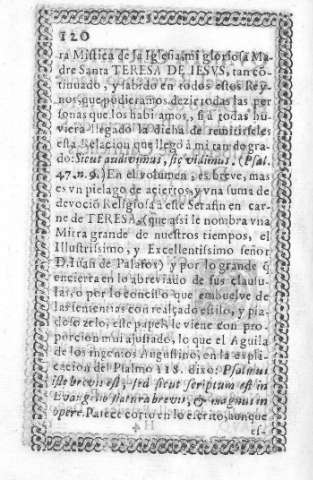 120
ra Mistica de la Iglesia, mi gloriosa Ma
dre Santa TERESA DE IESVS, tan cõ-
tinuado, y sabido en todos estos Rey-
nos, que pudieramos dezir todas las per
sonas que los habitamos, si à todas hu-
viera llegado la dicha de remitirseles
esta Relacion que llegò à mi tan de gra-
do: Sicut audivimus, sic vidimus. (Psal.
47. n. 9.) En el volumen, es breve, mas
es vn pielago de aciertos, y vna suma de
devociõ Religiosa à este Serafin en car-
ne de TERESA, (que assi le nombra vna
Mitra grande de nuestros tiempos, el
Illustrissimo, y Excellentissimo señor
D. Iuan de Palafox) y por lo grande q̃
encierra en lo abreviado de sus clausu-
las, ò por lo concisso que embuelve de
las sentencias con realçado estilo, y pia-
doso zelo, este papel, le viene con pro-
porcion mui ajustado, lo que el Aguila
de los ingenios Augustino, en la espli-
cacion del Psalmo 118. dixo: Psalmus
iste brevis est, sed sicut scriptum est in
Evangelio statura brevis, & magnus in
opere. Parece corto en lo escrito, aunque
H 4
es-